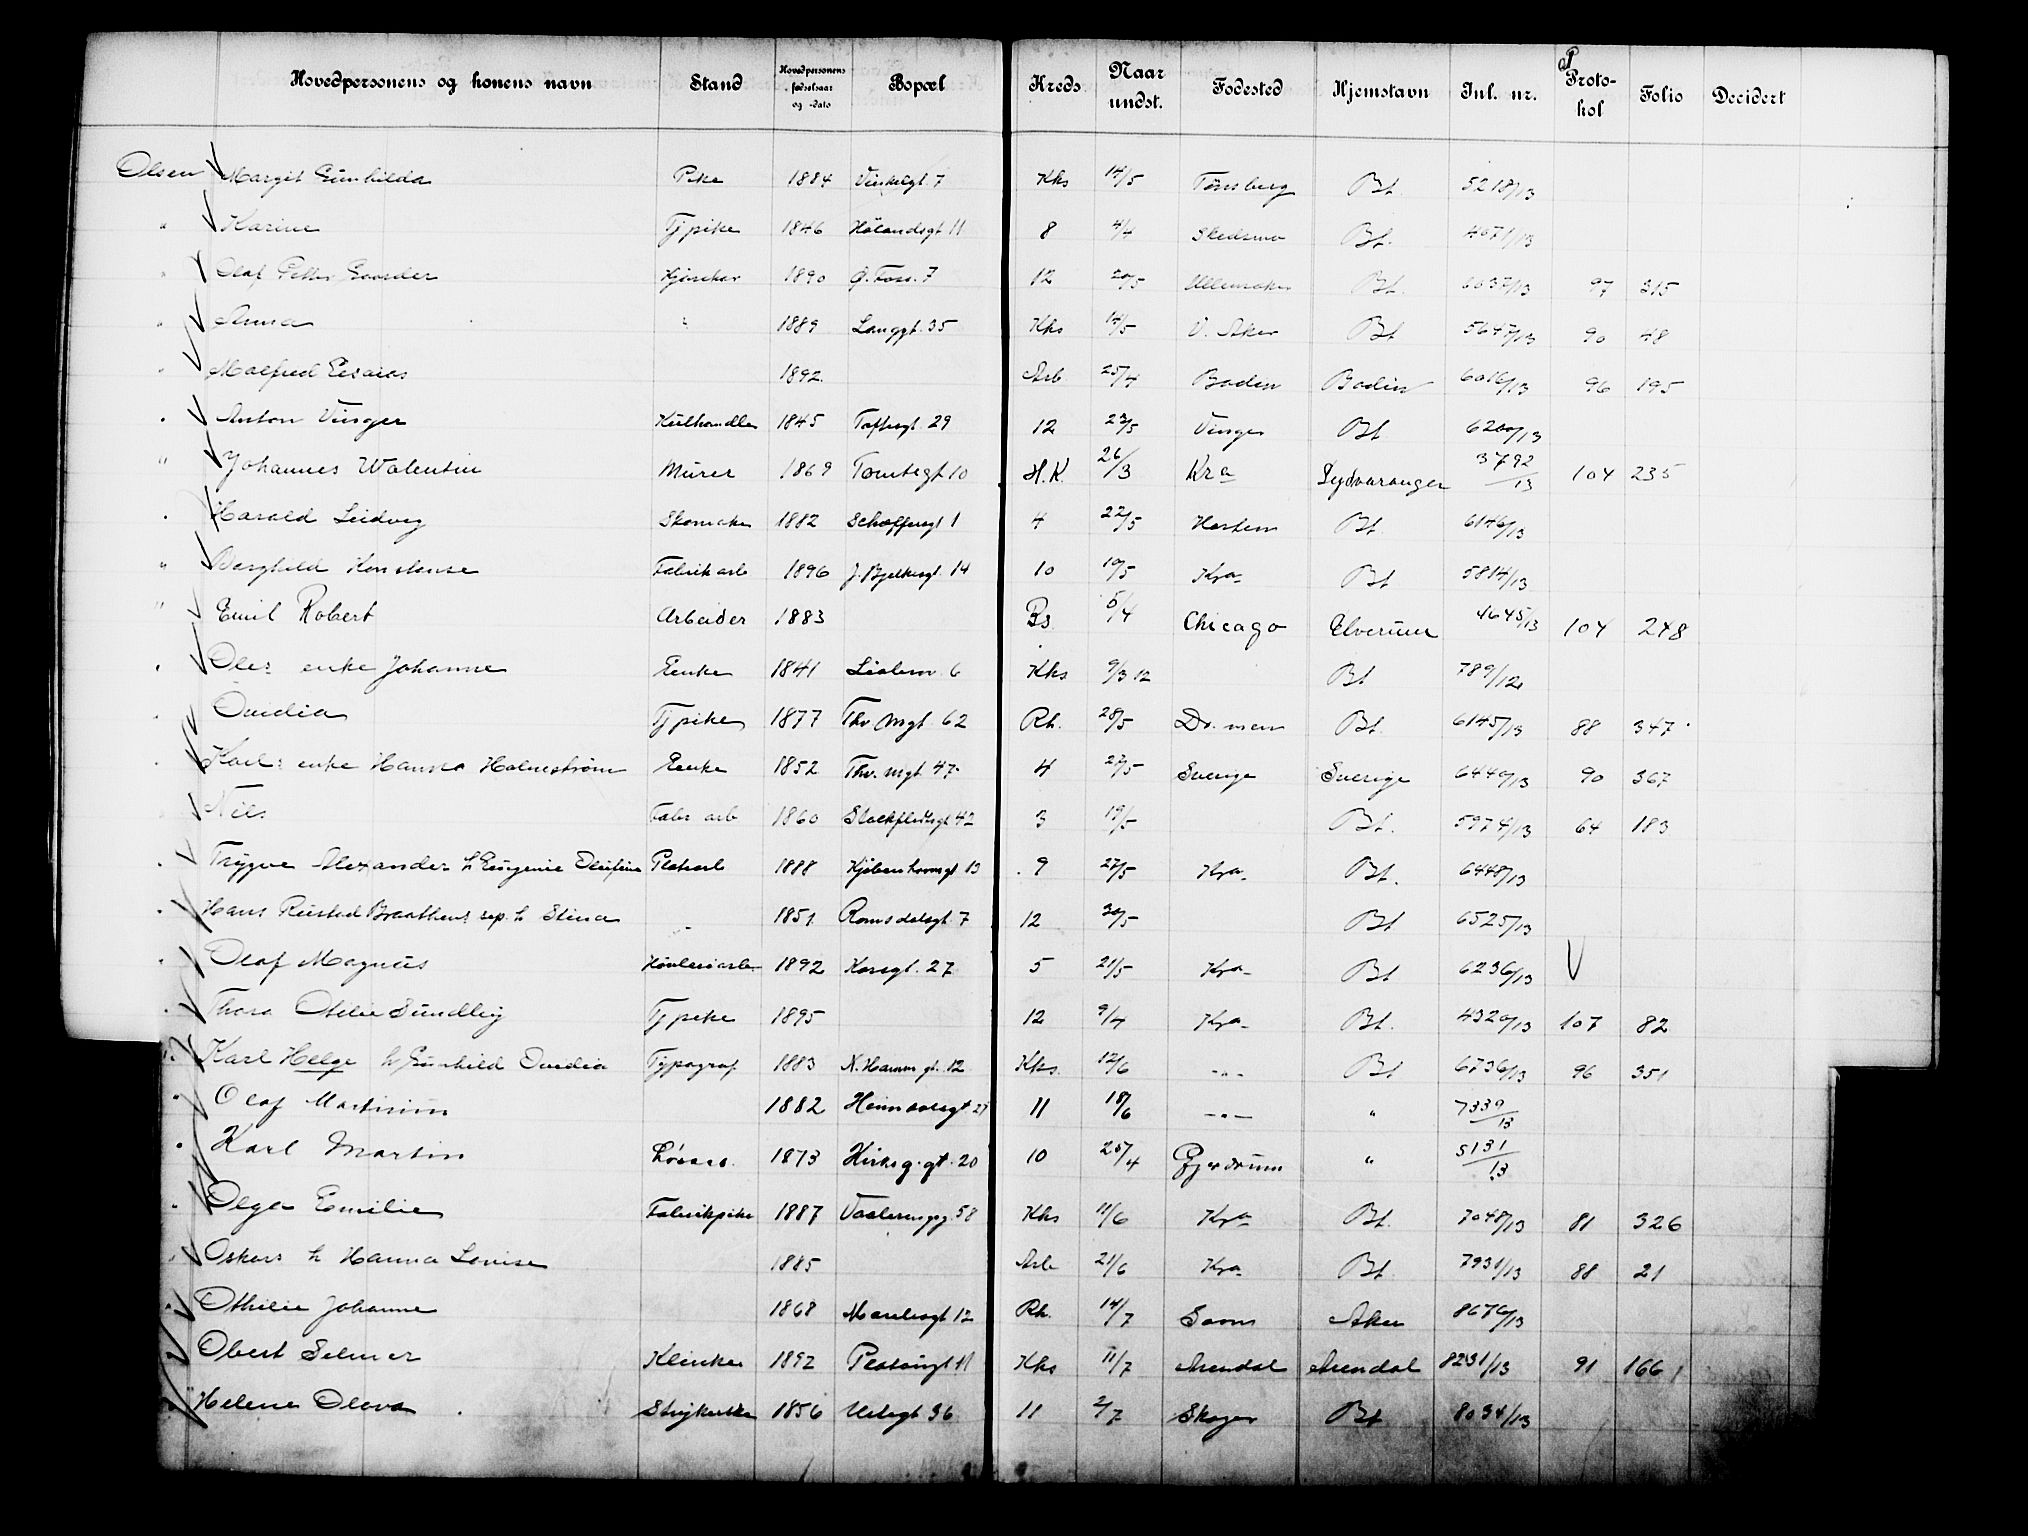 Hovedpersonens og konens navn Stand Hovedpersonens fødselsaar og -dato Bopæl Kreds Naar undst. Fødested Hjemstavn Inl. nr. Proto-kol Folio Decidert
Olsen Margit Gunhilda Pike 1884 7 Kks 14/5 Tønsberg Bt. 5218/13
" Karine Tjpike 1846 Hølandsgt 11 8 4/4 Skedsmo Bt. 4071/13
" Olaf Petter Gaarder Kjørekar 1890 Ø. Foss. 7 12 20/5 Ullensaker Bt. 6037/13 97 315
" Anna " 1889 Langgt. 35 Kks 14/5 V. Aker Bt 5647/13 90 48
" Malfred Esaias 1892 Arb 25/4 Bodin Bodin 6016/13 96 195
" Anton Vinger Kulhandler 1845 Toftesgt 29 12 23/5 Vinger Bt 6200/13
" Johannes Walentin Murer 1869 Tomtegt 10 H.K. 26/3 Kra Sydvaranger 3792/13 104 235
" Harald Ludvig Skomaker 1882 Schæffersgt 1 4 22/5 Horten Bt. 6146/13
" Borghild Konstanse Fabrikarb 1896 J. Bjelkesgt. 14 10 10/5 Kra. Bt 5814/13
" Emil Robert Arbeider 1883 Bs. 5/4 Chicago Elverum 4645/13 104 248
" Oles enke Johanne Enke 1841 6 Kks 9/3 12 Bt 789/12
" Ovidia Tjpike 1877 Thv Mgt 62 Rh. 28/5 Dr.men Bt. 6145/13 88 347
" Karls enke Hanna Holmstrøm Enke 1852 Thv. Mgt 47 4 27/5 Sverige Sverige 6440/13 90 367
" Nils Fabr arb 1860 Stockfletsgt 42 3 19/5 Bt. 5974/13 64 183
" Trygve Alexander h Eugenie Platearb 1888 Kjøbenhavnsgt 13 9 27/5 Kra. Bt. 6448/13
" Hans Rustad Braathens sep. h Stina 1851 Romsdalsgt. 7 12 30/5 Bt 6525/13
" Olaf Magnus Høvleriarb. 1892 Korsgt. 27 5 21/5 Kra. Bt 6236/13
" Thora Otilie Sundby Tjpike 1895 12 9/4 Kra. Bt. 4320/13 107 82
" Karl Helge h Gunhild Ovidia Typograf 1883 N. Hamm gt. 12 Kks. 12/6 -"- Bt 6736/13 96 351
" Olaf Martinius 1882 Heimdalsgt 27 11 18/6 -"- " 7339/13
" Karl Martin Løsarb. 1873 Hirksg.gt. 20 10 25/4 Gjerdrum " 5131/13
" Olga Emilie Fabrikpike 1887 Vaalerengg 58 Kks 11/6 Kra Bt. 7048/13 81 326
" Oskars h Hanna Lovise 1885 Arb 21/6 Kra. Bt. 7931/13 88 21
" Othilie Johanne 1868 Maribogt 12 Rh. 14/7 Sørum Aker 8676/13
" Obert Selmer Klinker 1892 Platougt 11 Kks 11/7 Arendal Arendal 8231/13 91 166
" Helene Olava Strykerske 1856 Urtegt 36 11 2/7 Skoger Bt 8034/13